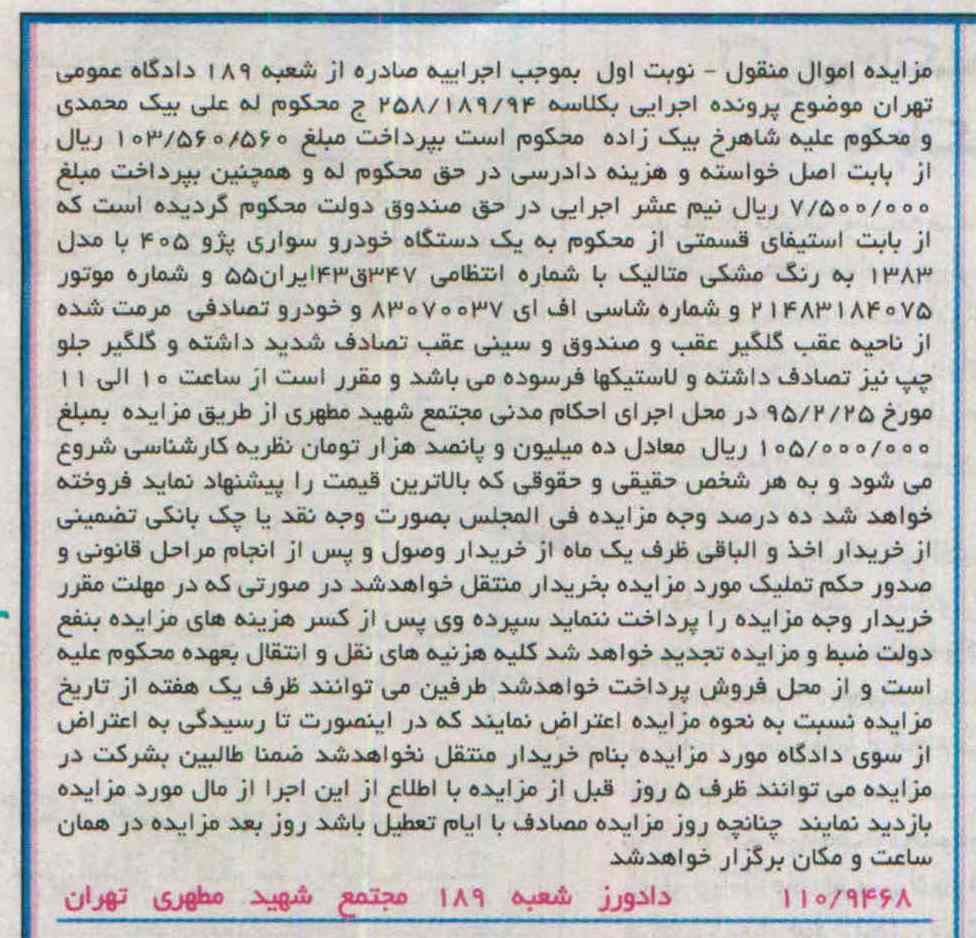 مزایده اموال منقول - نوبت اول بموجب اجراییه صادره از شعبه ۱۸۹ دادگاه عمومی
تهران موضوع پرونده اجرایی بکلاسه ۲۵۸/۱۸۹/۹۴ ج محکوم له علی بیک محمدی
و محکوم علیه شاهرخ بیک زاده محکوم است بپرداخت مبلغ ۱۰۳/۵۶۰/۵۶۰ ریال
از بابت اصل خواسته و هزینه دادرسی در حق محکوم له و همچنین بپرداخت مبلغ
۷/۵۰۰/۰۰۰ ریال نیم عشر اجرایی در حق صندوق دولت محکوم گردیده است که
از بابت استیفای قسمتی از محکوم به یک دستگاه خودرو سواری پژو ۴۰۵ با مدل
۱۳۸۳ به رنگ مشکی متالیک با شماره انتظامی ۳۴۷ق۴۳ایران۵۵ و شماره موتور
۲۱۴۸۳۱۸۴۰۷۵ و شماره شاسی اف ای ۸۳۰۷۰۰۳۷ و خودرو تصادفی مرمت شده
از ناحیه عقب گلگیر عقب و صندوق و سینی عقب تصادف شدید داشته و گلگیر جلو
چپ نیز تصادف داشته و لاستیکها فرسوده می باشد و مقرر است از ساعت ۱۰ الی ۱۱
مورخ ۹۵/۲/۲۵ در محل اجرای احکام مدنی مجتمع شهید مطهری از طریق مزایده بمبلغ
۱۰۵/۰۰۰/۰۰۰ ریال معادل ده میلیون و پانصد هزار تومان نظریه کارشناسی شروع
می شود و به هر شخص حقیقی و حقوقی که بالاترین قیمت را پیشنهاد نماید فروخته
خواهد شد ده درصد وجه مزایده فی المجلس بصورت وجه نقد یا چک بانکی تضمینی
از خریدار اخذ و الباقی ظرف یک ماه از خریدار وصول و پس از انجام مراحل قانونی و
صدور حکم تملیک مورد مزایده بخریدار منتقل خواهدشد در صورتی که در مهلت مقرر
خریدار وجه مزایده را پرداخت ننماید سپرده وی پس از کسر هزینه های مزایده بنفع
دولت ضبط و مزایده تجدید خواهد شد کلیه هزنیه های نقل و انتقال بعهده محکوم علیه
است و از محل فروش پرداخت خواهدشد طرفین می توانند ظرف یک هفته از تاریخ
مزایده نسبت به نحوه مزایده اعتراض نمایند که در اینصورت تا رسیدگی به اعتراض
از سوی دادگاه مورد مزایده بنام خریدار منتقل نخواهدشد ضمنا طالبین بشرکت در
مزایده می توانند ظرف ۵ روز قبل از مزایده با اطلاع از این اجرا از مال مورد مزایده
بازدید نمایند چنانچه روز مزایده مصادف با ایام تعطیل باشد روز بعد مزایده در همان
ساعت و مکان برگزار خواهدشد
۱۱۰/۹۴۶۸ دادورز شعبه ۱۸۹ مجتمع شهید مطهری تهران